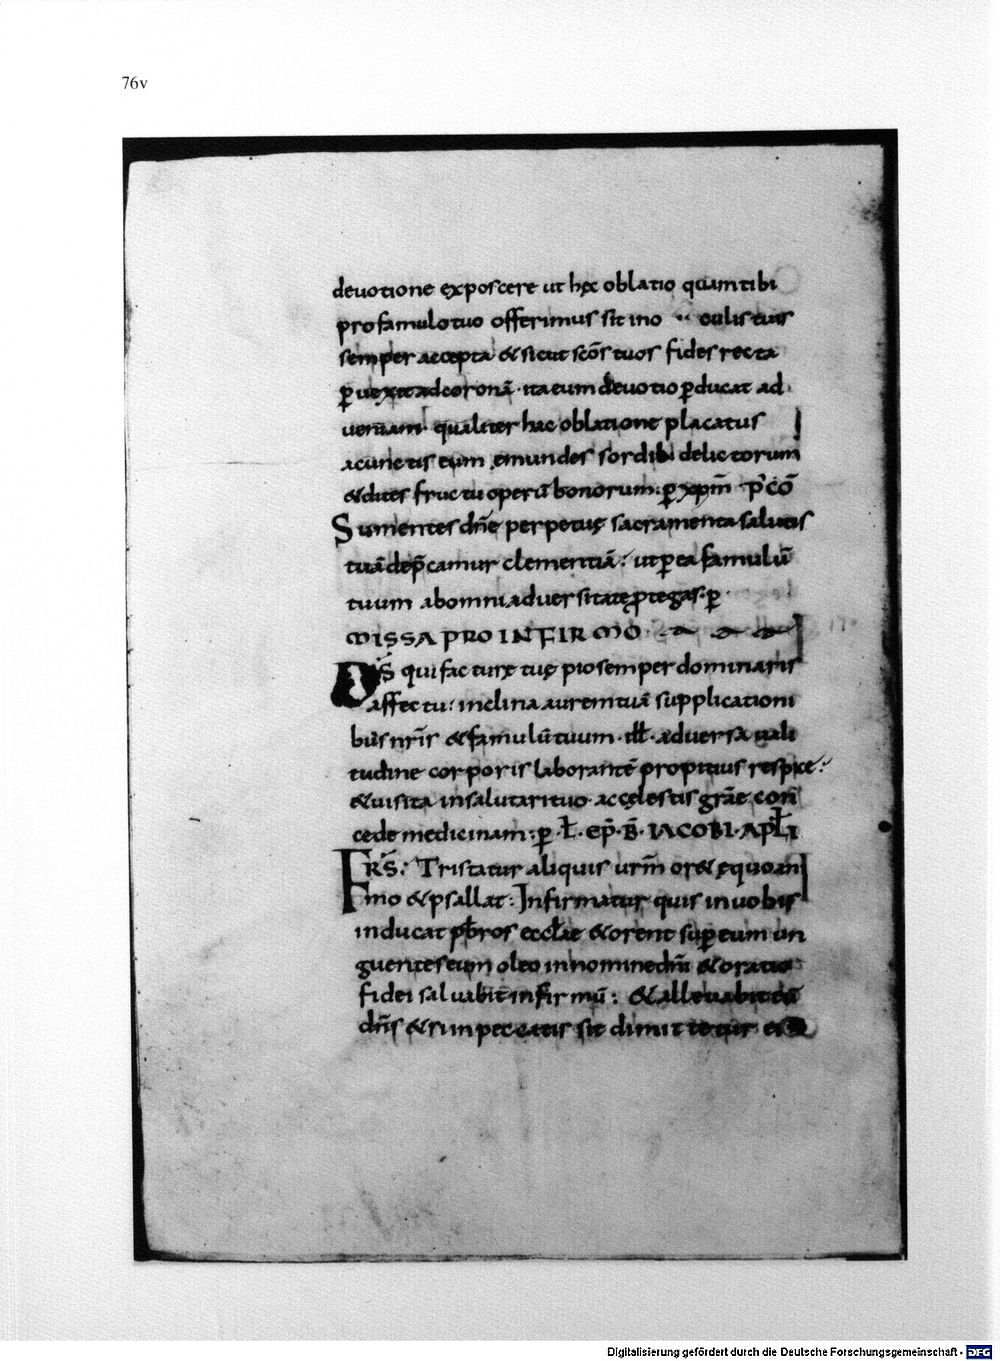 76v
devotione exposcere ut hęc oblatio quam tibi
pro famulo tuo offerimus sit in o culis tuis
semper accepta & sicut scōs tuos fides recta
p̱uexit ad coronā · ita eum deuotio p̱ducat ad
ueniam · qualiter hac oblatione placatus
a cunctis eum emundes sordib; delictorum
& dites fructu operū bonorum : p̱ xp̄m P' CŌ
Sumentes dn̄e perpetuę sacramenta salutis
tuā dep̄camur clementiā : ut p̱ ea famulū
tuum ab omni aduersitate p̱tegas · p̱ ·
MISSA PRO INFIRMO
DS̄ qui facturę tuę pio semper dominaris
affectu : inclina aurem tuā supplicationi
bus nr̄is & famulū tuum · ill · aduersa uali
tudine corporis laborantē propitius respice :
& uisita in salutari tuo · ac cęlestis grāe con
cede medicinam : p̱ · Ł · EP̄ · B̄ · IACOBI · APŁI
FRS̄ : Tristatur aliquis urm̄ or& ęquo ani
mo & psallat : Infirmatur quis in uobis
inducat pb̄ros eccłae & orent sup̱ eum un
guentes eum oleo in nomine dn̄i & oratio
fidei saluabit infirmū : & alleuabit eū
dn̄s & si in peccatis sit dimittetur ei
Digitalisierung gefördert durch die Deutsche Forschungsgemeinschaft - DFG